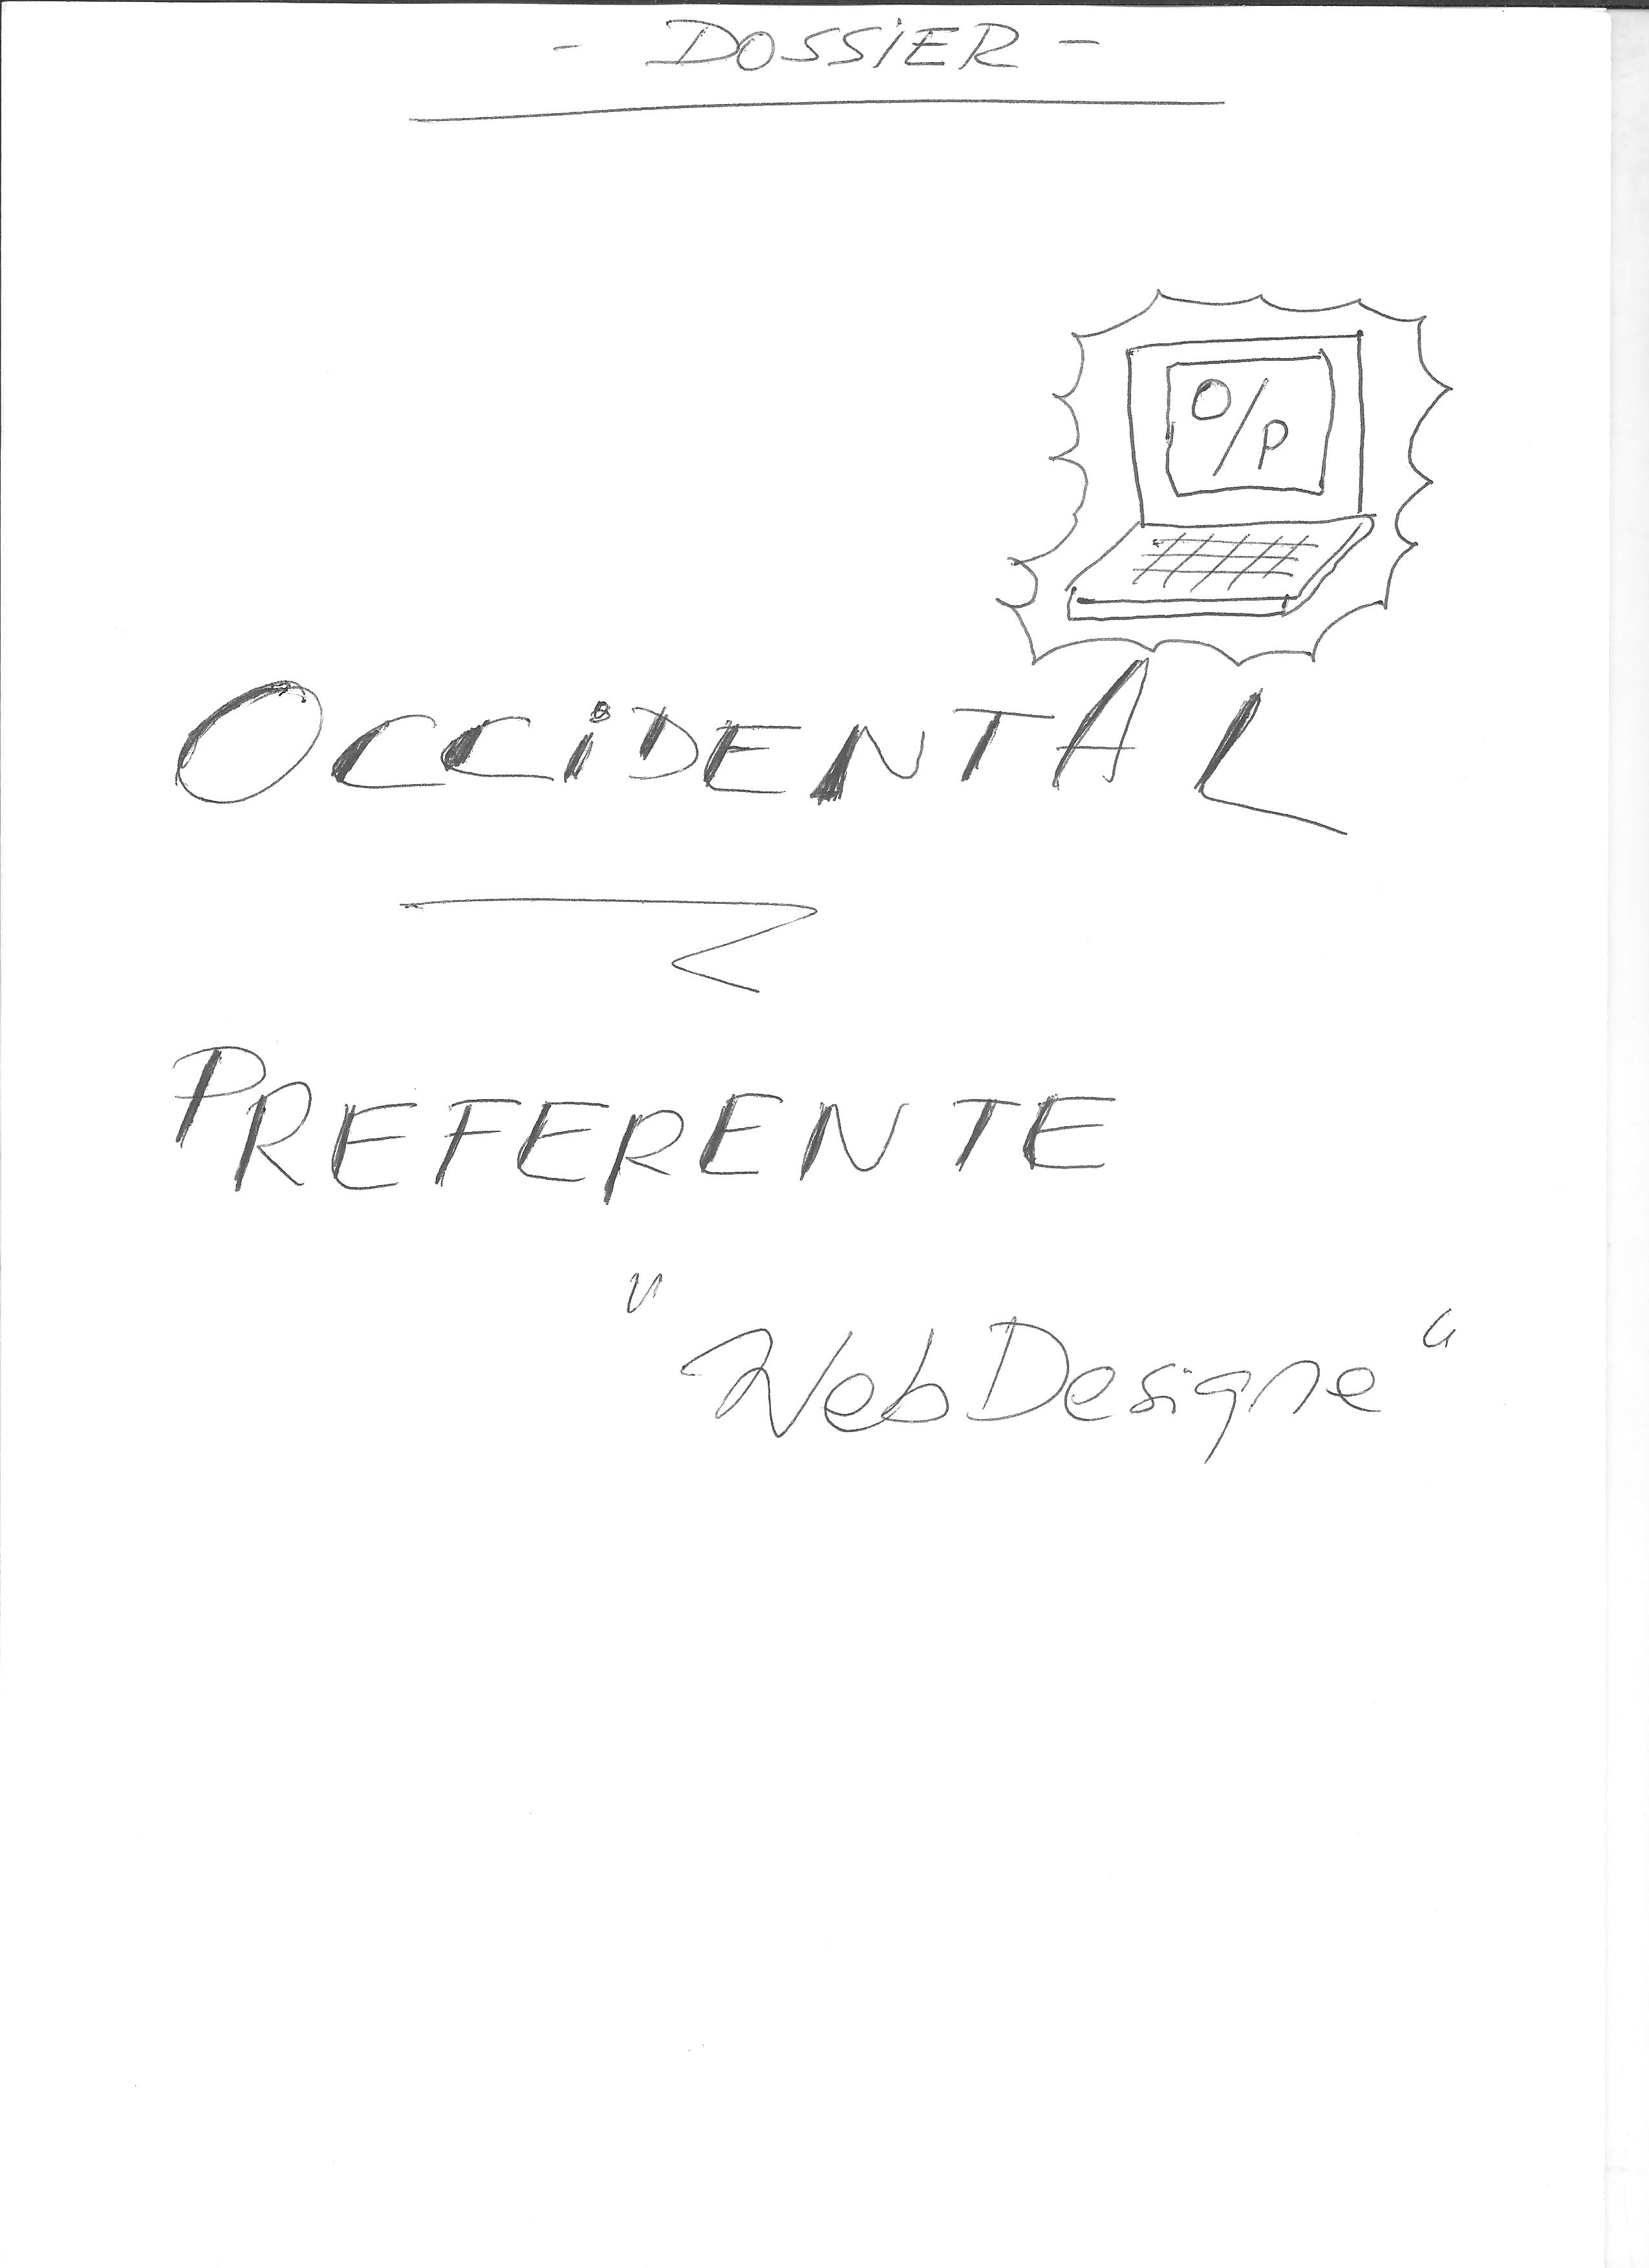 - DOSSiER -
O/P
OCCiDENTAL
PREFERENTE
"WebDesigne"